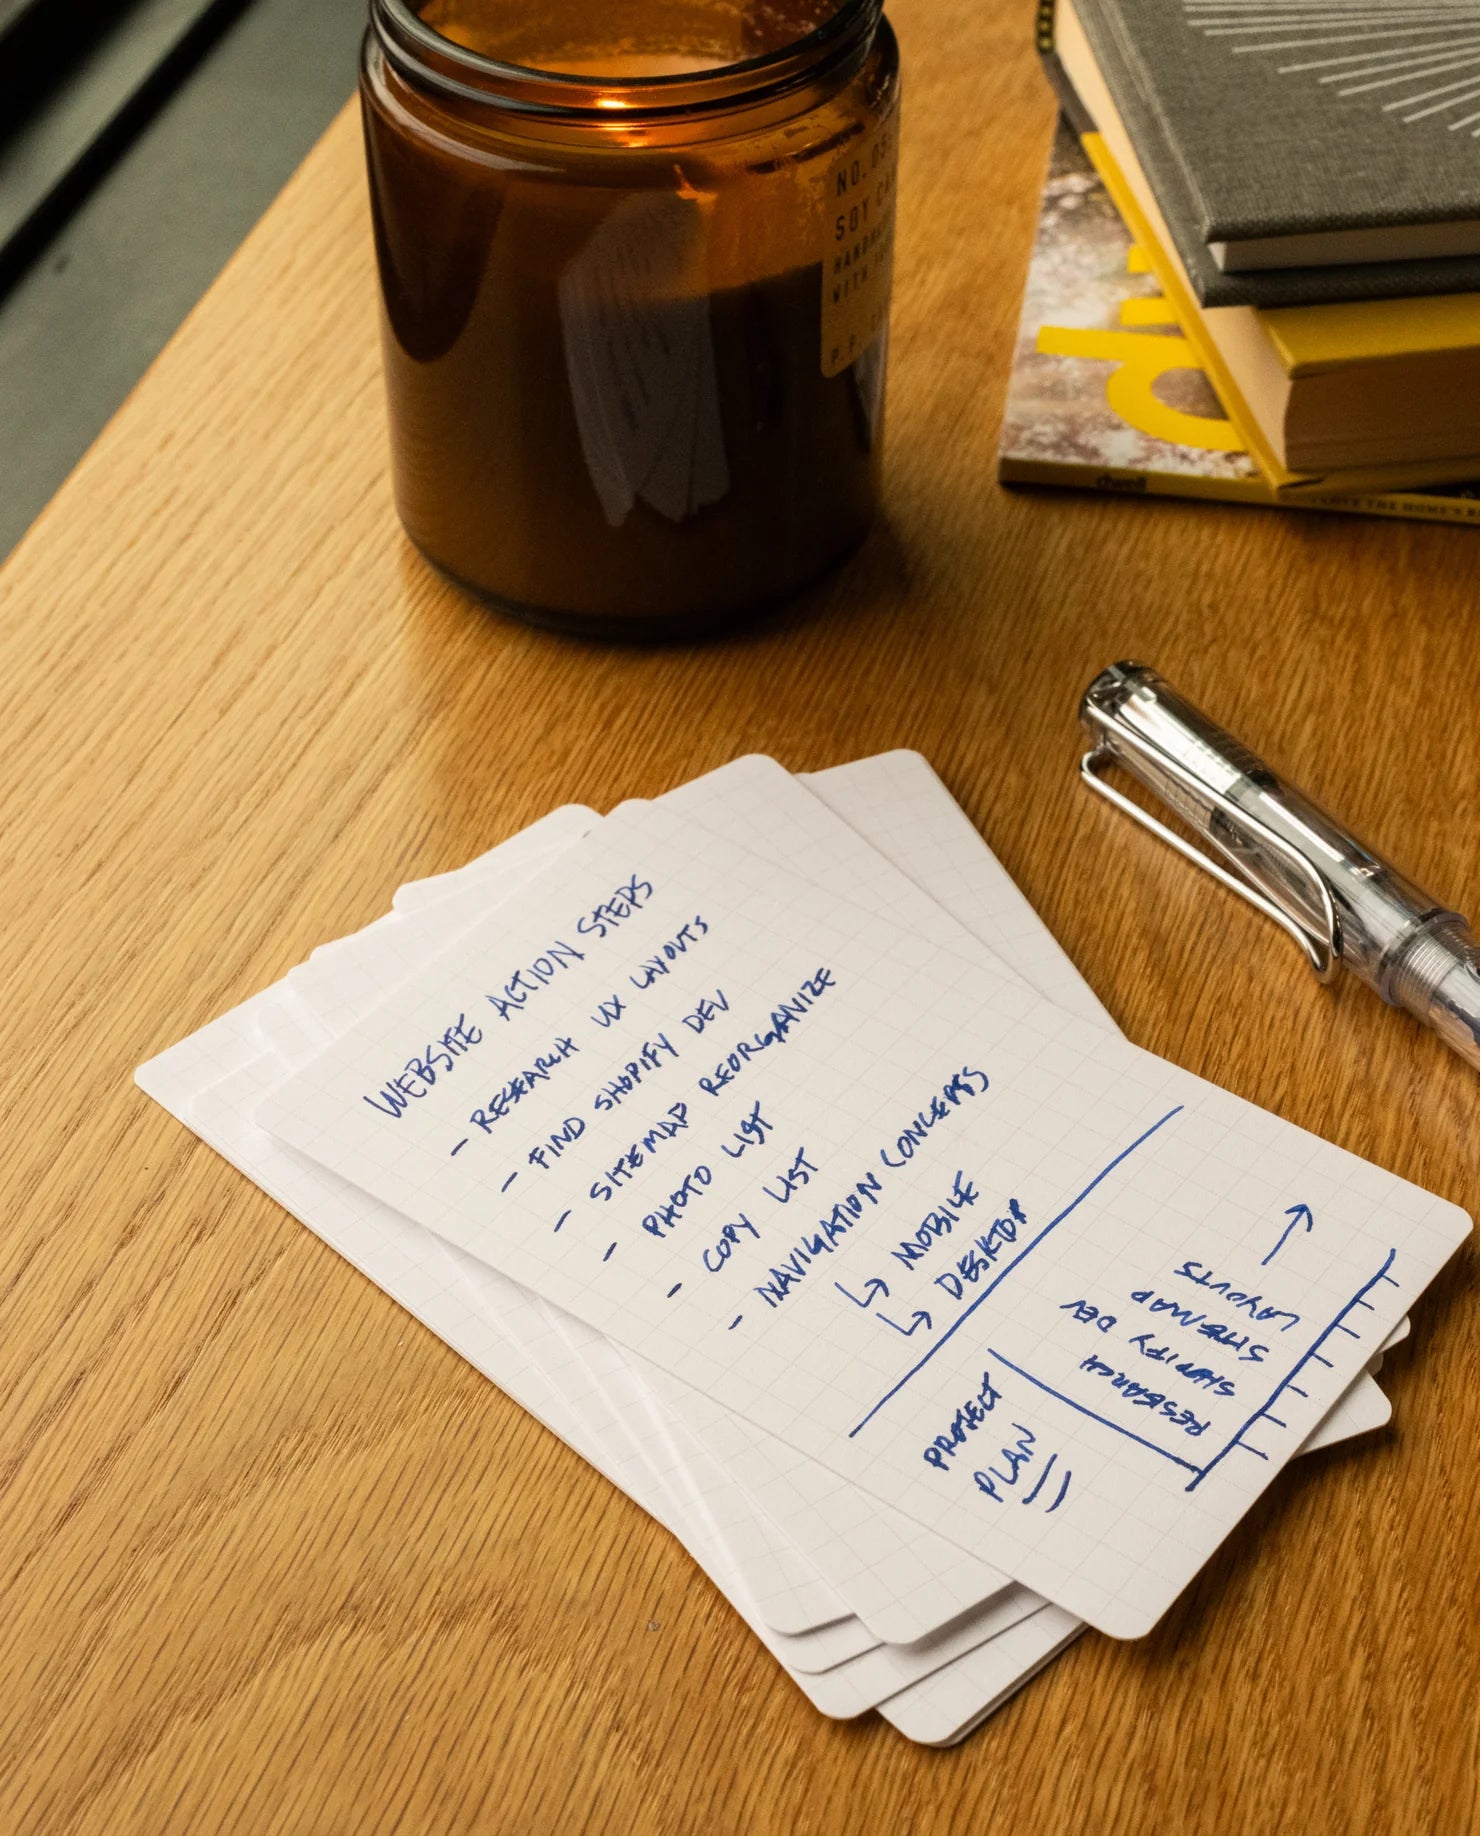 NO. 05
SOY CA
HANDM
WITH
P.F. CA
dw
dwell
WEBSITE ACTION STEPS
- RESEARCH UX LAYOUTS
- FIND SHOPIFY DEV
- SITEMAP REORGANIZE
- PHOTO LIST
- COPY LIST
- NAVIGATION CONCEPTS
↳ MOBILE
↳ DESKTOP
PROJECT
PLAN
RESEARCH
SHOPIFY DEV
SITEMAP
LAYOUTS
→